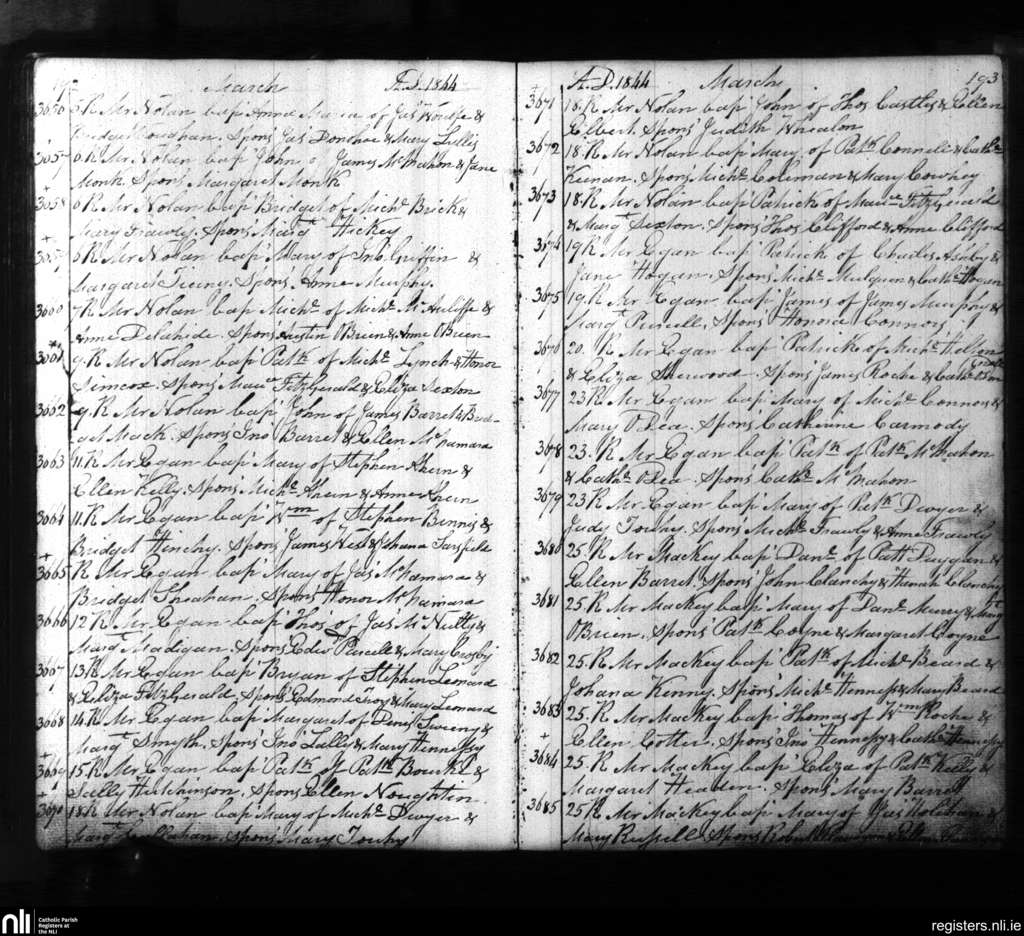 March A.D. 1844
3656 5. R Mr Nolan bap' Anna Maria of Jas Woulfe &
Bridget Coughan. Spons' Jas Donohoe & Mary Lillis
3657 6. R Mr Nolan bap' John of James McMahon & Jane
Monk. Spons' Margaret Monk
3658 6 R Mr Nolan bap' Bridget of Michl. Brick &
Mary Frawly. Spons Margt Hickey
6 R Mr Nolan bap' Mary of Jno Griffin &
Margaret Tierny. Spons' Anne Murphy.
3660 7. R Mr Nolan bap' Michl. of Michl. McAuliffe &
Anne Delahide. Spons Austin OBrien & Anne OBrien
3661 9. R Mr Nolan bap' Patk of Michl. Lynch & Honor
Simcox. Spons Maurce Fitzgerald & Eliza Sexton
3662 9. R Mr Nolan bap' John of James Barret & Brid-
get Mack. Spons' Jno Barret & Ellen McNamara
3663 11. R Mr Egan bap' Mary of Stephen Ahern &
Ellen Kelly. Spons' Michl. Ahern & Anne Ahern
3664 11. R Mr Egan bap' Wm of Stephen Binnis &
Bridget Henchy. Spons James & Johana Sarsfield
3665 R Mr Egan bap' Mary of Jas McNamara &
Bridget Sheahan. Spons Honor McNamara
3666 12 R Mr Egan bap' Thos of Jas McNulty &
Margt Madigan. Spons Edwd Purcell & Mary Crosby
3667 13. R Mr Egan bap' Bryan of Stephen Leonard
& Eliza Fitzgerald. Spons' Edmond Troy & Mary Leonard
3668 14. R Mr Egan bap Margaret of Denis Sweeny &
Margt Smyth. Spons' Jno Lally & Mary Hennessy
3669 15. R Mr Egan bap' Patk of Patk Bourke &
Sally Hutchinson. Spons Ellen Noughten
3670 18. R Mr Nolan bap Mary of Michl. Dwyer &
Margt Spons Mary Touhy
A.D. 1844 March 193
3671 18. R Mr Nolan bap' John of Thos Castles & Ellen
Elbert. Spons' Judith Whealon
3672 18. R Mr Nolan bap' Mary of Patk Connell & Cathe
Keenan. Spons Michl. Coleman & Mary Cowhey
3673 18. R Mr Nolan bap' Patrick of Maurce Fitzgerald
& Margt Sexton. Spons' Thos Clifford & Anne Clifford
3674 19. R Mr Egan bap' Patrick of Charles &
Jane Hogan. Spons' Michl. Mulqueen & Cathe Hogan
3675 19. R Mr Egan bap' James of James Murphy &
Margt Purcell. Spons' Honora Connors
3676 20. R Mr Egan bap' Patrick of Michl.
& Eliza Sherwood. Spons James Roche & Cathe
3677 23 R Mr Egan bap' Mary of Michl. Connors &
Mary ODea. Spons Catherine Carmody
3678 23. R Mr Egan bap' Patk of Patk McMahon
& Cathe ODea. Spons' Cathe McMahon
3679 23 R Mr Egan bap' Mary of Patk Dwyer &
Judy Touhy. Spons' Michl. Frawly & Anne Frawly
3680 25. R Mr Mackey bap' Danl. of Patt Duggan &
Ellen Barret. Spons' John Clanchy & Hanah Clanchy
3681 25. R Mr Mackey bap' Mary of Danl. Murry & Margt
OBrien. Spons' Patk Coyne & Margaret Coyne
3682 25. R Mr Mackey bap' Patk of Michl. Beard &
Johana Kenny. Spons' Michl. Henness & Mary Beard
3683 25. R Mr Mackey bap' Thomas of Wm Roche &
Ellen Cotter. Spons' Jno Hennessy & Cathe Hennessy
3684 25. R Mr Mackey bap' Eliza of Patk Kelly &
Margaret Headen. Spons' Mary Barret
3685 25 R Mr Mackey bap' Mary of Jas Holohan &
Mary Russell. Spons Robert
nli Catholic Parish
Registers at
the NLI
registers.nli.ie